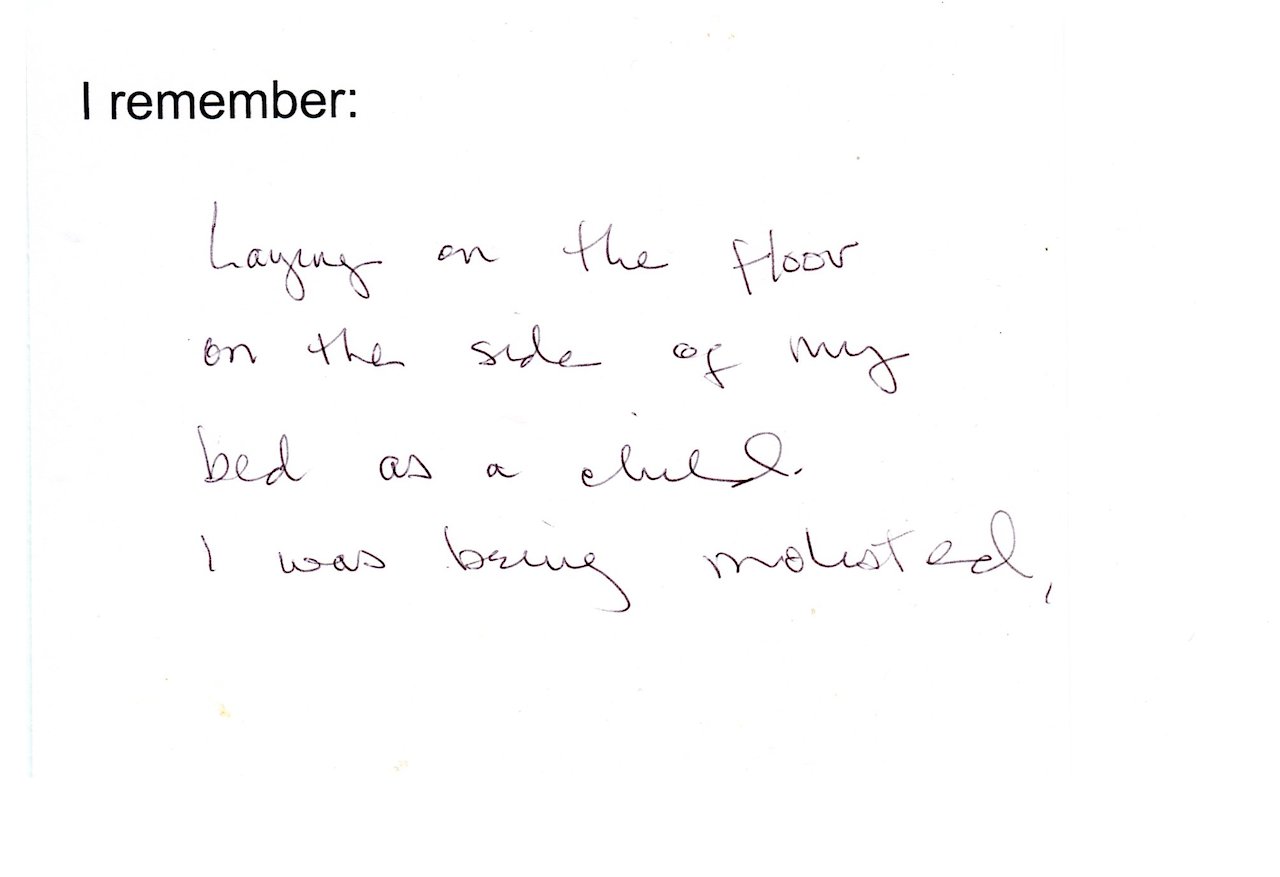 I remember:
Laying on the floor
on the side of my
bed as a child.
I was being molested,